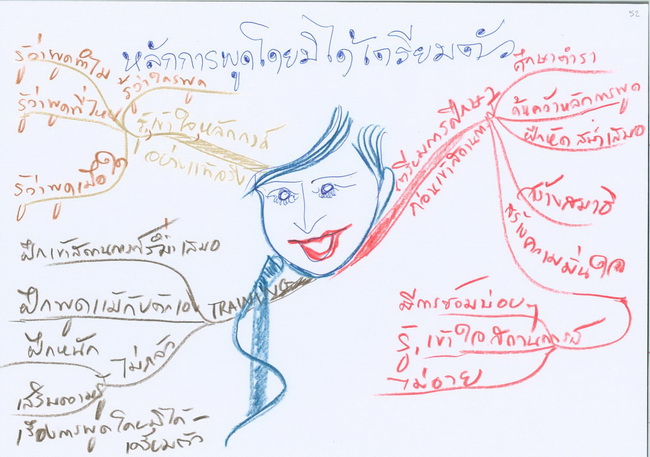 52
หลักการพูดโดยมิได้เตรียมตัว
รู้ว่าพูดทำไม
รู้ว่าใครพูด
รู้ว่าพูดที่ไหน
รู้ว่าพูดเมื่อใด
รู้เข้าใจหลักการ
อย่างแท้จริง
เตรียมการศึกษา
ก่อนเข้าสถานการ
ศึกษาตำรา
ค้นคว้าหลักการพูด
ฝึกหัดสม่ำเสมอ
สร้างสมาธิ
สร้างความมั่นใจ
มีการซ้อมบ่อยๆ
รู้,เข้าใจสถานการณ์
ไม่อาย
TRAINING
ฝึกเข้าสถานการณ์สม่ำเสมอ
ฝึกพูดแม้กับตัวเอง
ฝึกหนัก
ไม่กลัว
เสริมความรู้
เรื่องการพูดโดยมิได้
เตรียมตัว